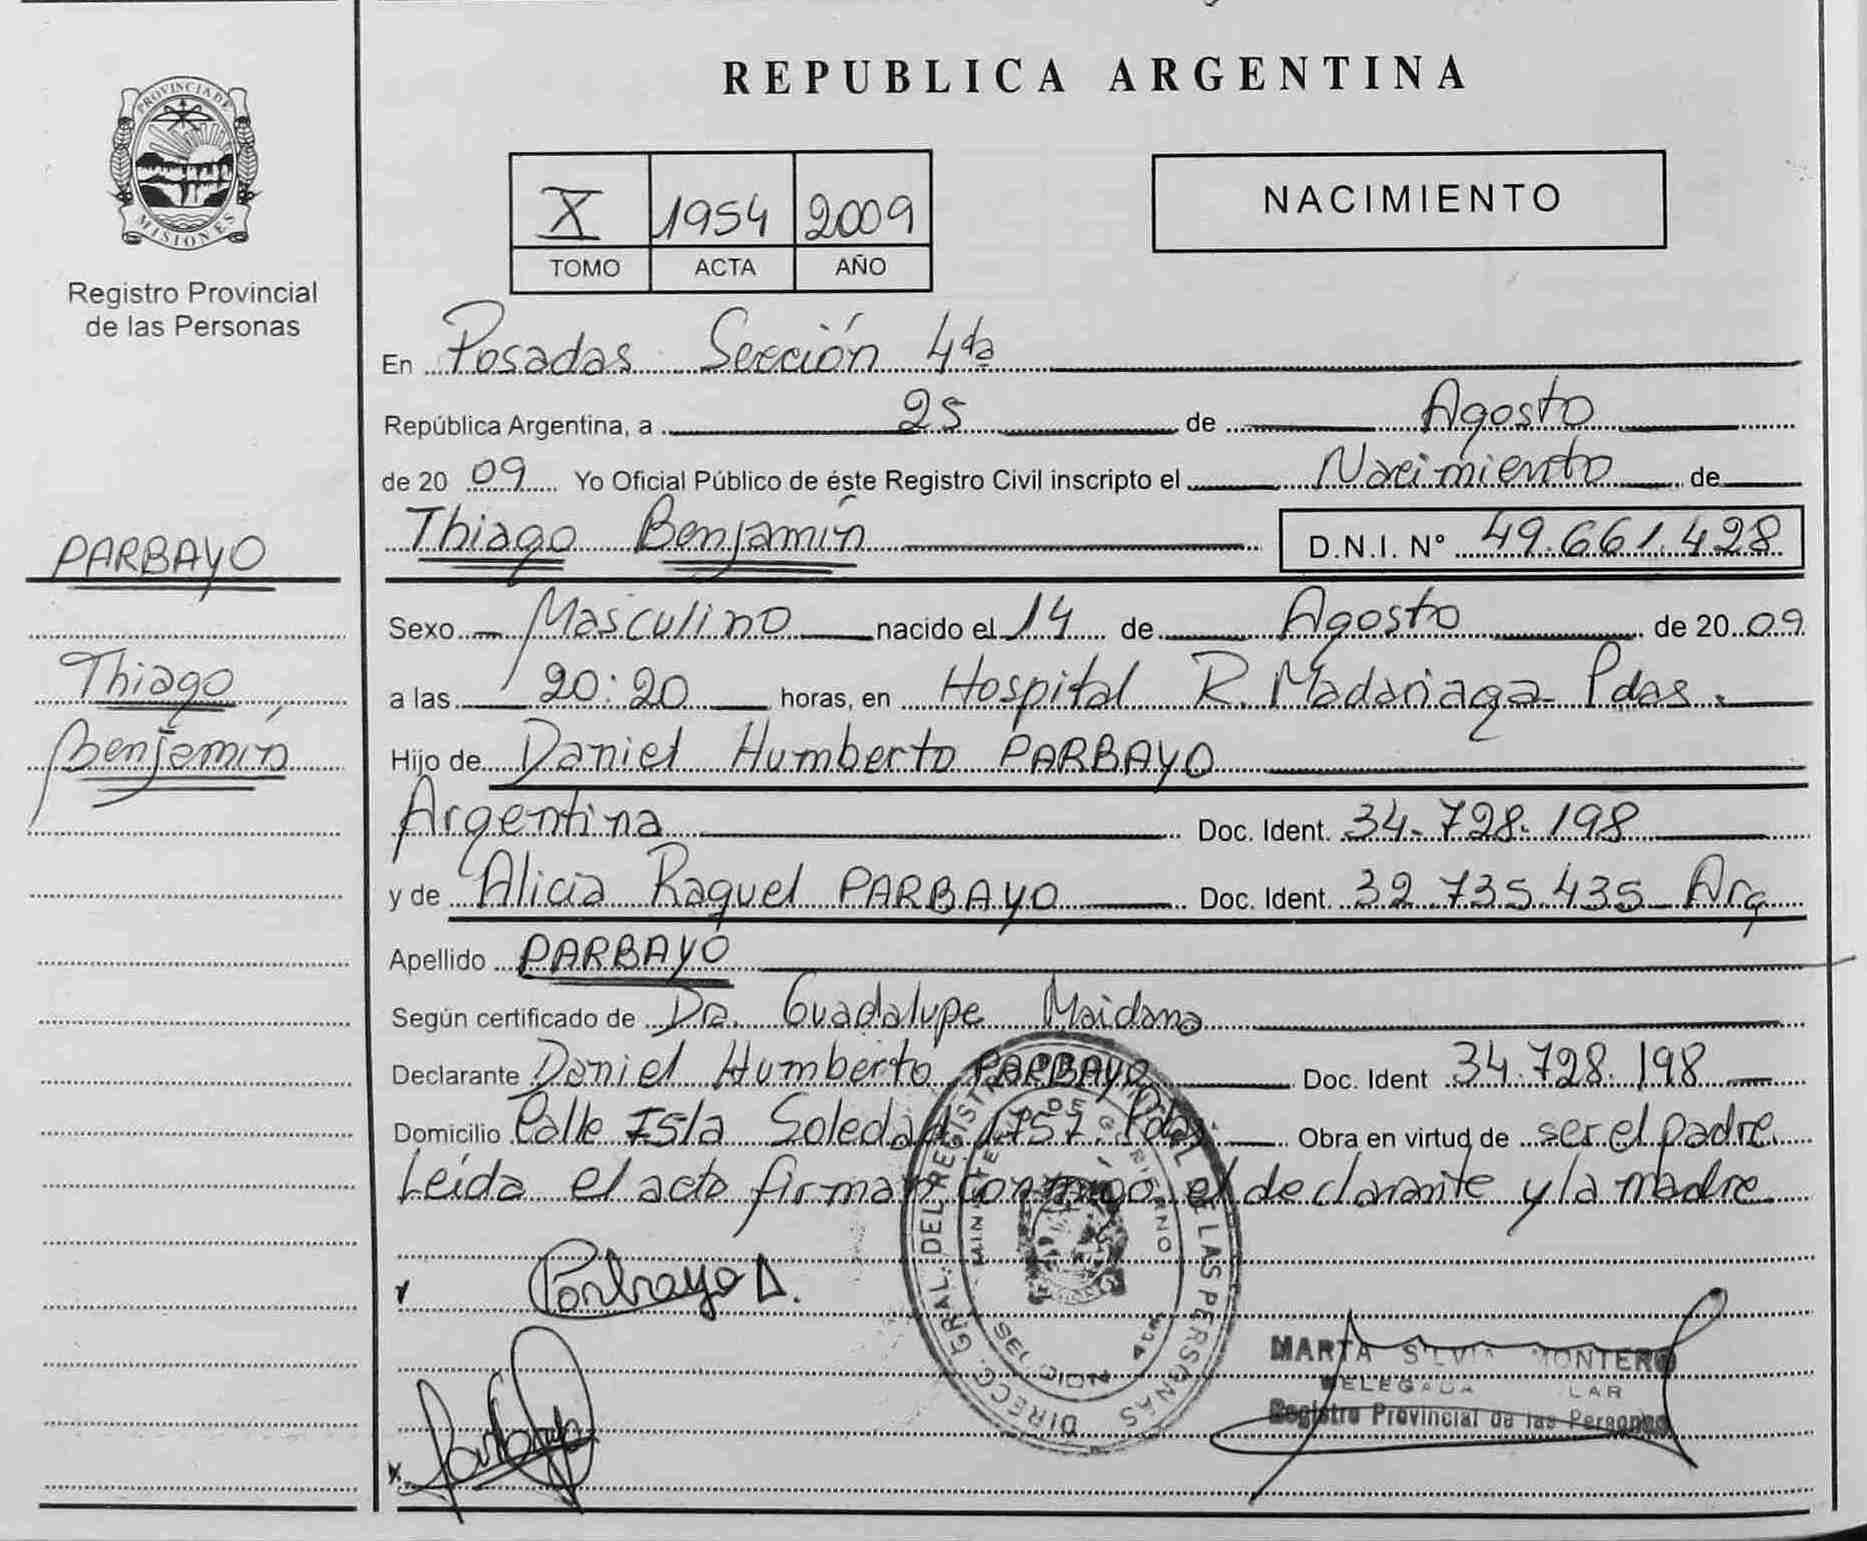 REPUBLICA ARGENTINA
PROVINCIA DE MISIONES
Registro Provincial
de las Personas
X 1954 2009
TOMO ACTA AÑO
NACIMIENTO
En Posadas Sección 4ta
República Argentina, a 25 de Agosto
de 20 09 Yo Oficial Público de éste Registro Civil inscripto el Nacimiento de
Thiago Benjamín D.N.I. Nº 49.661.428
PARBAYO
Thiago
Benjamín
Sexo Masculino nacido el 14 de Agosto de 20 09
a las 20:20 horas, en Hospital R. Madariaga Pdas.
Hijo de Daniel Humberto PARBAYO
Argentina Doc. Ident. 34.728.198
y de Alicia Raquel PARBAYO Doc. Ident. 32.735.435 Arg
Apellido PARBAYO
Según certificado de Dra. Guadalupe Maidana
Declarante Daniel Humberto PARBAYO Doc. Ident 34.728.198
Domicilio Calle Isla Soledad 1757 Pdas Obra en virtud de ser el padre.
Leída el acta firman conmigo el declarante y la madre
Parbayo D.
DIRECC. GRAL. DEL REGISTRO PROVINCIAL DE LAS PERSONAS
MINISTERIO DE GOBIERNO
MISIONES
MARTA SILVIA MONTERO
DELEGADA
Registro Provincial de las Personas